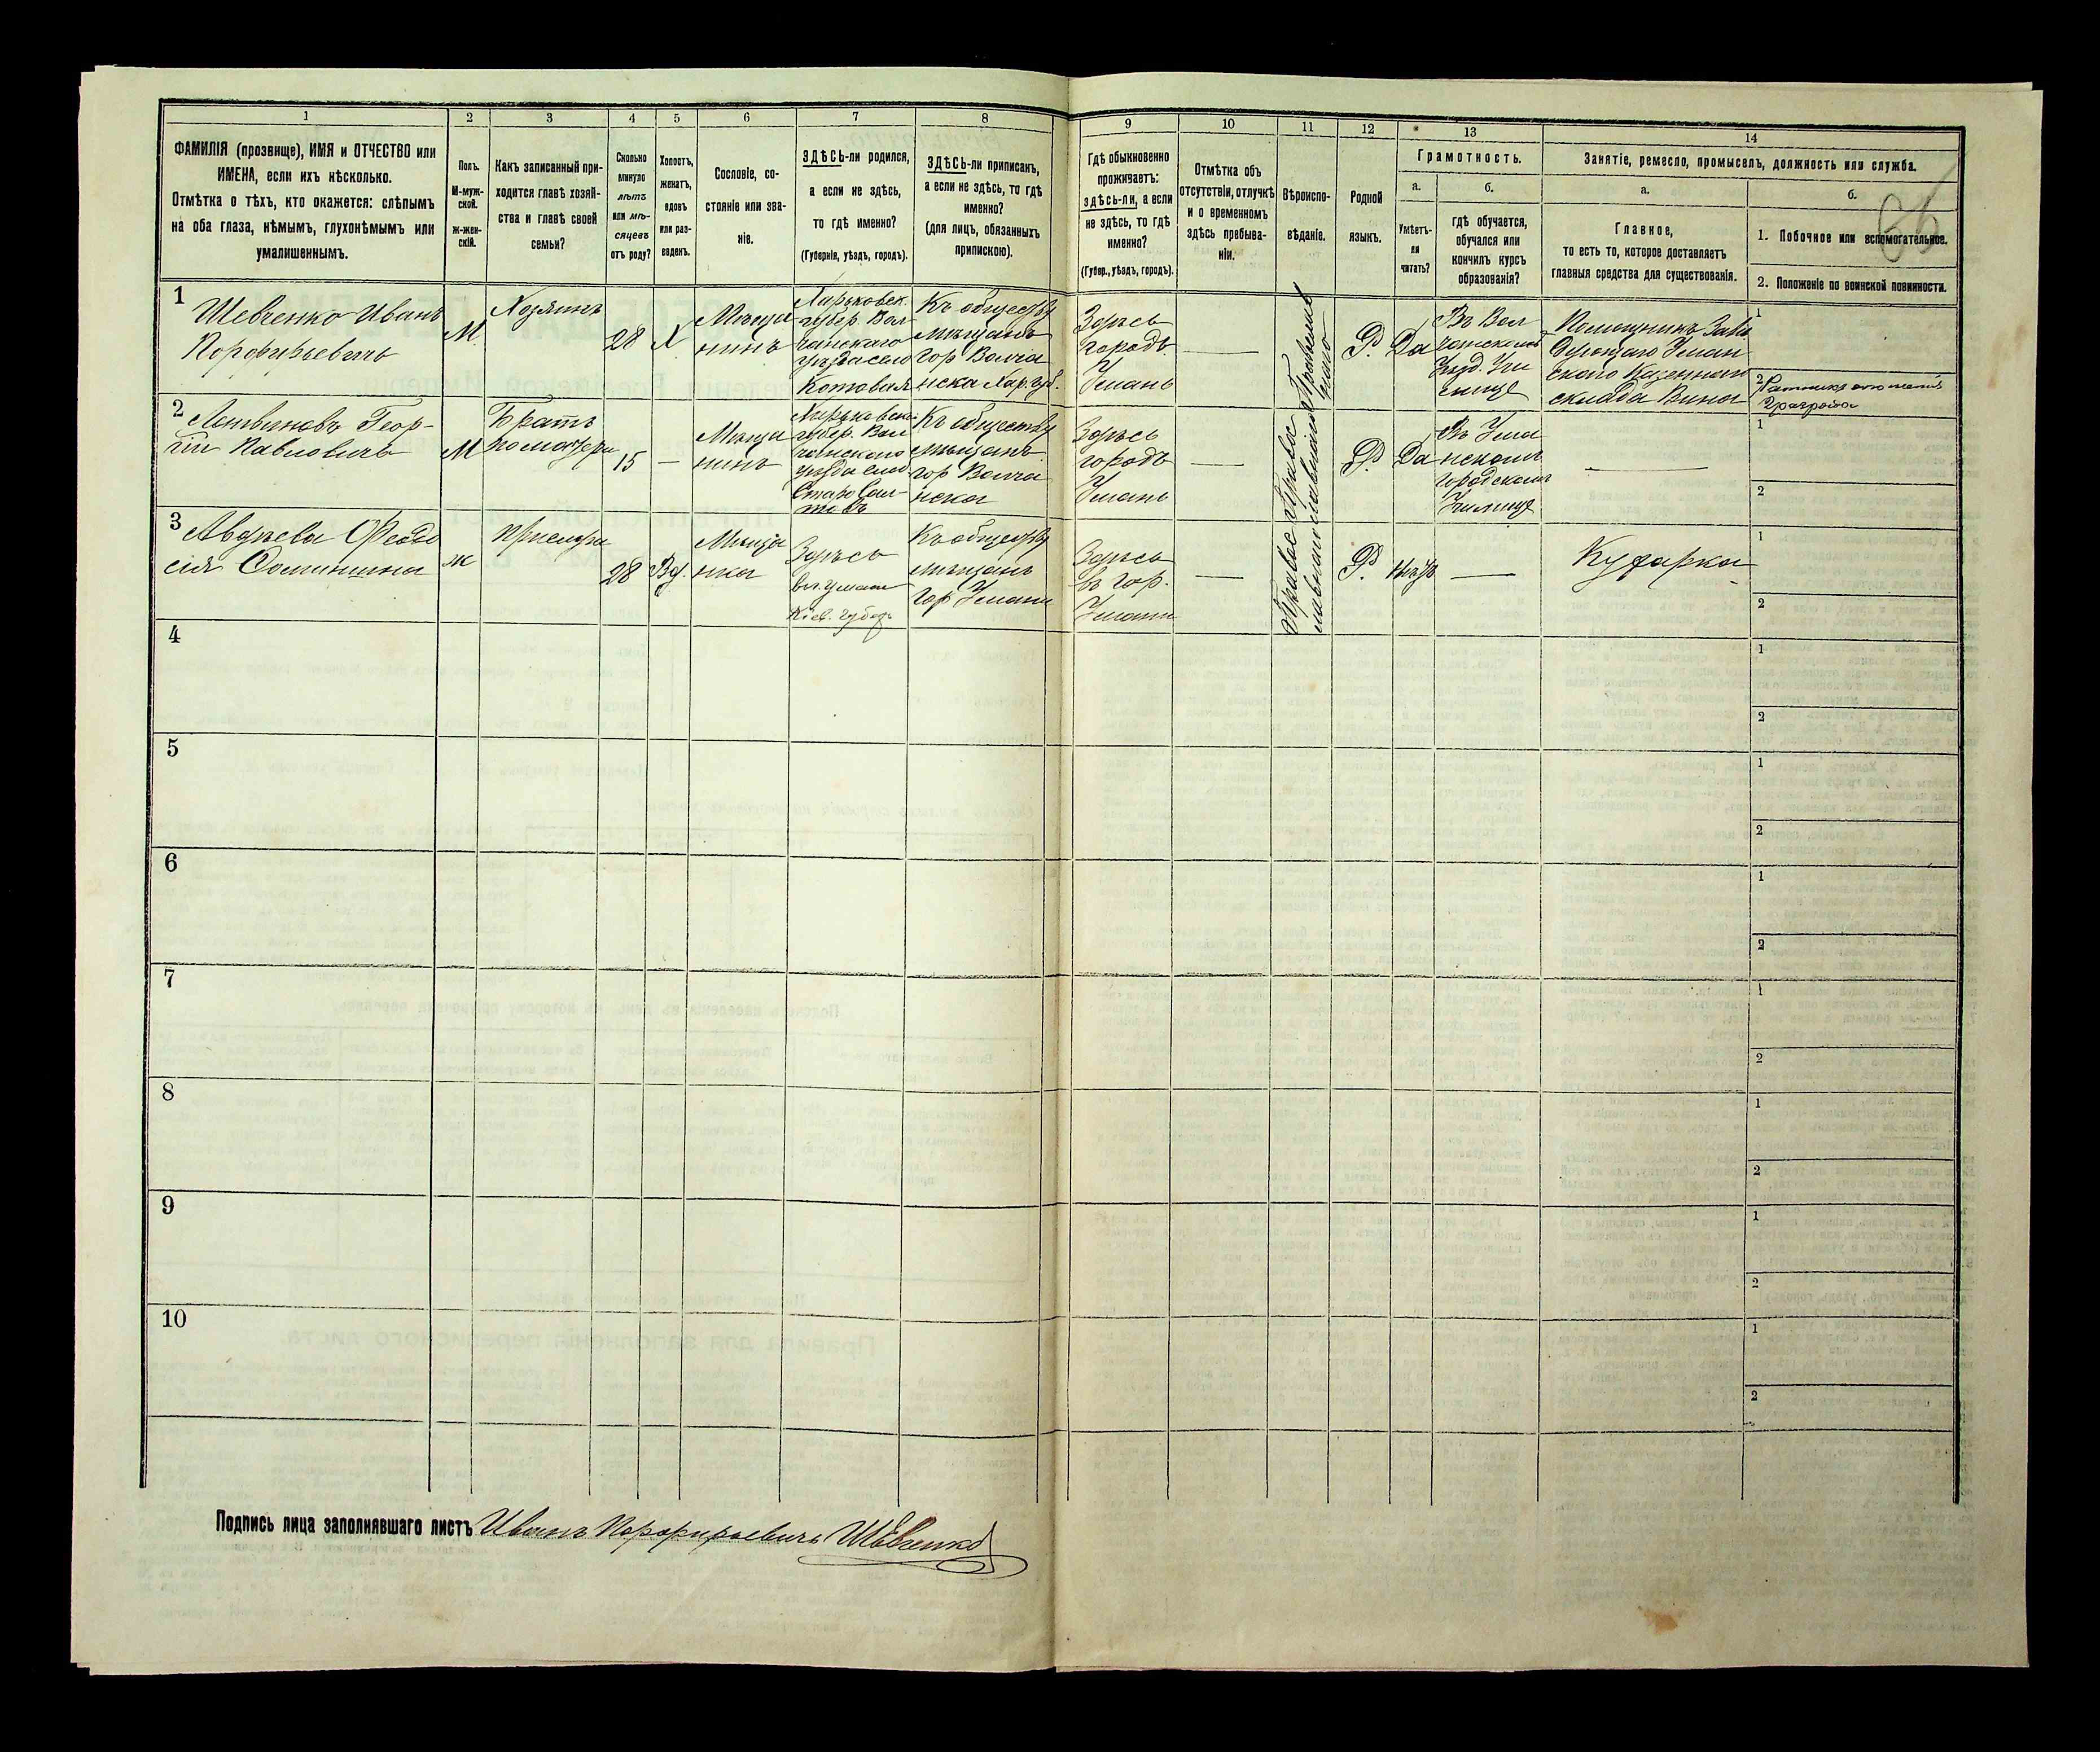 1
2
3
4
5
6
7
8
9
10
11
12
13
14
ФАМИЛІЯ (прозвище), ИМЯ и ОТЧЕСТВО или
ИМЕНА, если ихъ нѣсколько.
Отмѣтка о тѣхъ, кто окажется: слѣпымъ
на оба глаза, нѣмымъ, глухонѣмымъ или
умалишеннымъ.
Полъ.
М-муж-
ской.
ж-жен-
скій.
Какъ записанный при-
ходится главѣ хозяй-
ства и главѣ своей
семьи?
Сколько
минуло
лѣтъ
или мѣ-
сяцевъ
отъ роду?
Холостъ,
женатъ,
вдовъ
или раз-
веденъ.
Сословіе, со-
стояніе или зва-
ніе.
ЗДѢСЬ-ли родился,
а если не здѣсь,
то гдѣ именно?
(Губернія, уѣздъ, городъ).
ЗДѢСЬ-ли приписанъ,
а если не здѣсь, то гдѣ
именно?
(для лицъ, обязанныхъ
припискою).
Гдѣ обыкновенно
проживаетъ:
здѣсь-ли, а если
не здѣсь, то гдѣ
именно?
(Губер., уѣздъ, городъ).
Отмѣтка объ
отсутствіи, отлучкѣ
и о временномъ
здѣсь пребыва-
ніи.
Вѣроиспо-
вѣданіе.
Родной
языкъ.
Грамотность.
а.
Умѣетъ-
ли
читать?
б.
гдѣ обучается,
обучался или
кончилъ курсъ
образованія?
Занятіе, ремесло, промыселъ, должность или служба.
а.
Главное,
то есть то, которое доставляетъ
главныя средства для существованія.
б.
1. Побочное или вспомогательное.
2. Положеніе по воинской повинности.
1
Шевченко Иванъ
Порфирьевичъ
М
Хозяинъ
28
Х
Мѣща
нинъ
Харьковск.
губер. Вол
чанскаго
уѣзда село
Котовка
Къ обществу
мѣщанъ
гор Волча
нска Хар. губ.
Здѣсь
городъ
Умань
—
Православ
ное
Р.
Да
Въ Вол
чанскомъ
Уѣзд. Учи
лищѣ
Помощникъ Заве
дующаго Уман
скаго Казеннаго
склада Вина
1
2
Ратникъ ополченія
2 разряда
2
Литвиновъ Геор-
гій Павловичъ
М
Братъ
по матери
15
—
Мѣща
нинъ
Харьковско
губер. Вол
чанскаго
уѣзда слоб
Старо Сал-
товъ
Къ обществу
мѣщанъ
гор Волча
нска
Здѣсь
городъ
Умань
—
Правос
лавное
Р.
Да
Въ Ума
нскомъ
городскомъ
Училищѣ
—
1
2
3
Авдѣева Феодо
сія Фоминишна
ж
Прислуга
28
Вд.
Мѣща
нка
Здѣсь
въ г. Умани
Кіев. губер.
Къ обществу
мѣщанъ
гор Умани
Здѣсь
въ гор.
Умани
—
Правос
лавное
Р.
Нѣтъ
—
Кухарка
1
2
4
1
2
5
1
2
6
1
2
7
1
2
8
1
2
9
1
2
10
1
2
Подпись лица заполнявшаго листъ Иванъ Порфирьевичъ Шевченко